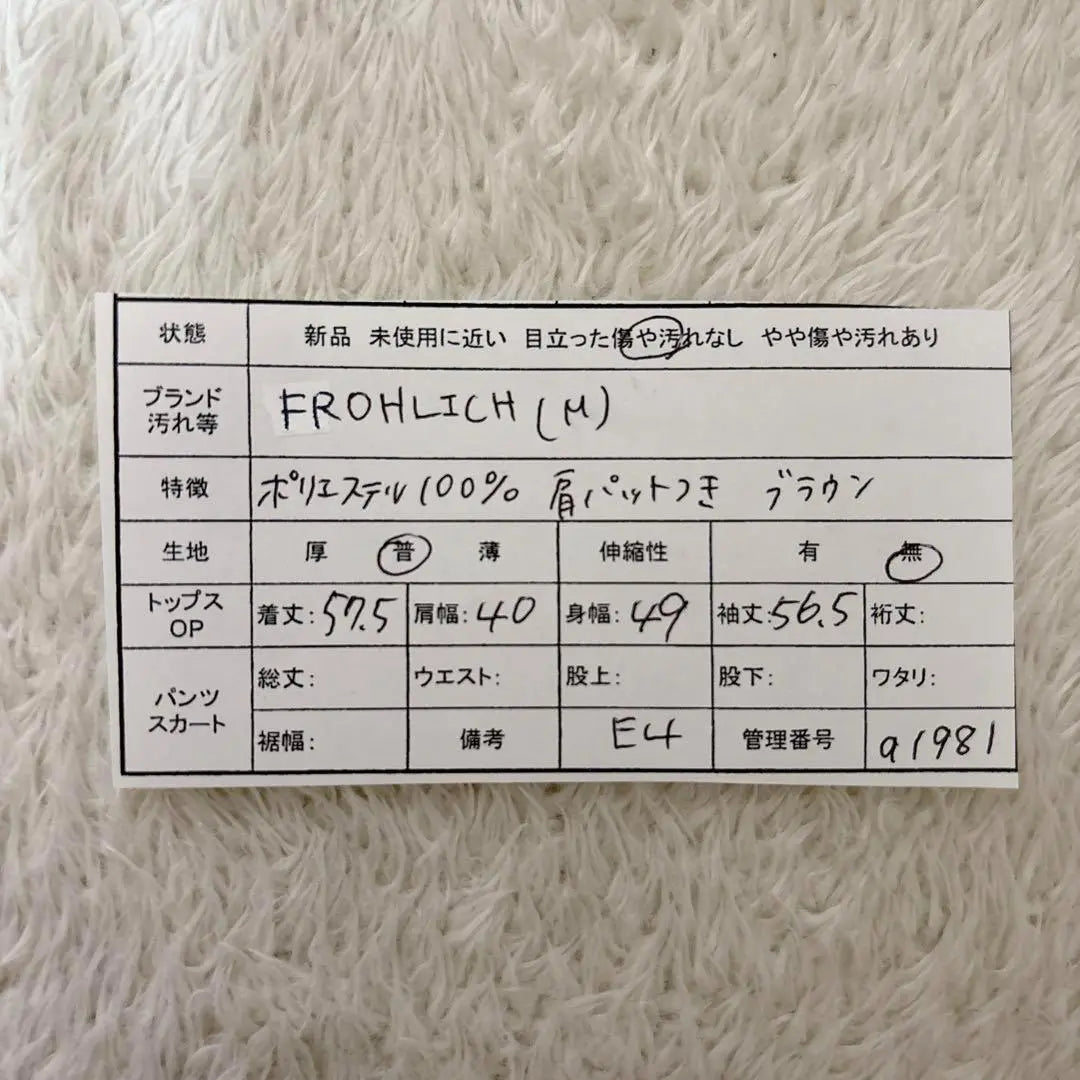 状態 新品 未使用に近い 目立った傷や汚れなし やや傷や汚れあり
ブランド
汚れ等 FROHLICH (M)
特徴 ポリエステル100% 肩パットつき ブラウン
生地 厚 普 薄 伸縮性 有 無
トップス
OP 着丈:57.5 肩幅:40 身幅:49 袖丈:56.5 裄丈:
パンツ
スカート 総丈: ウエスト: 股上: 股下: ワタリ:
裾幅: 備考 E4 管理番号 a1981